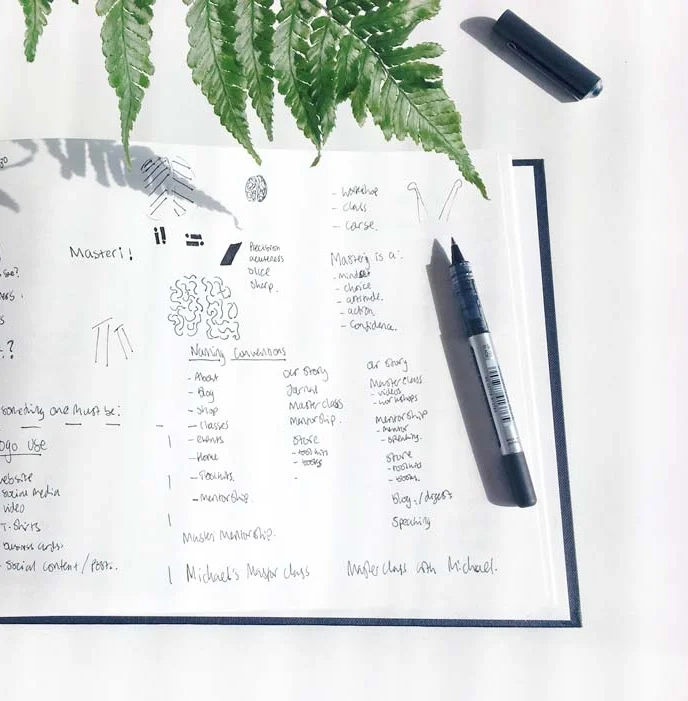 Masteri!
i!
Precision
acuteness
slice
sharp.
- workshop
- class
- corse.
Mastery is a:
- mindset
- choice
- attitude.
- action.
- Confidence.
Naming Conventions
- About
- Blog
- Shop
- Classes
- events
- Home
- Toolkits.
- mentorship.
our story
Journal
Masterclass
mentorship.
Store
- toolkits
- books
-
our story
Masterclass
- videos
- workshops
Mentorship
- mentor
- speaking.
Store
- toolkits
- books.
Blog. / digest
Speaking
Master Mentorship.
Michael's Master class
Master class with Michael.
something one must be:
logo use
website
social media
video
T-Shirts
business cards.
- Social content / posts.